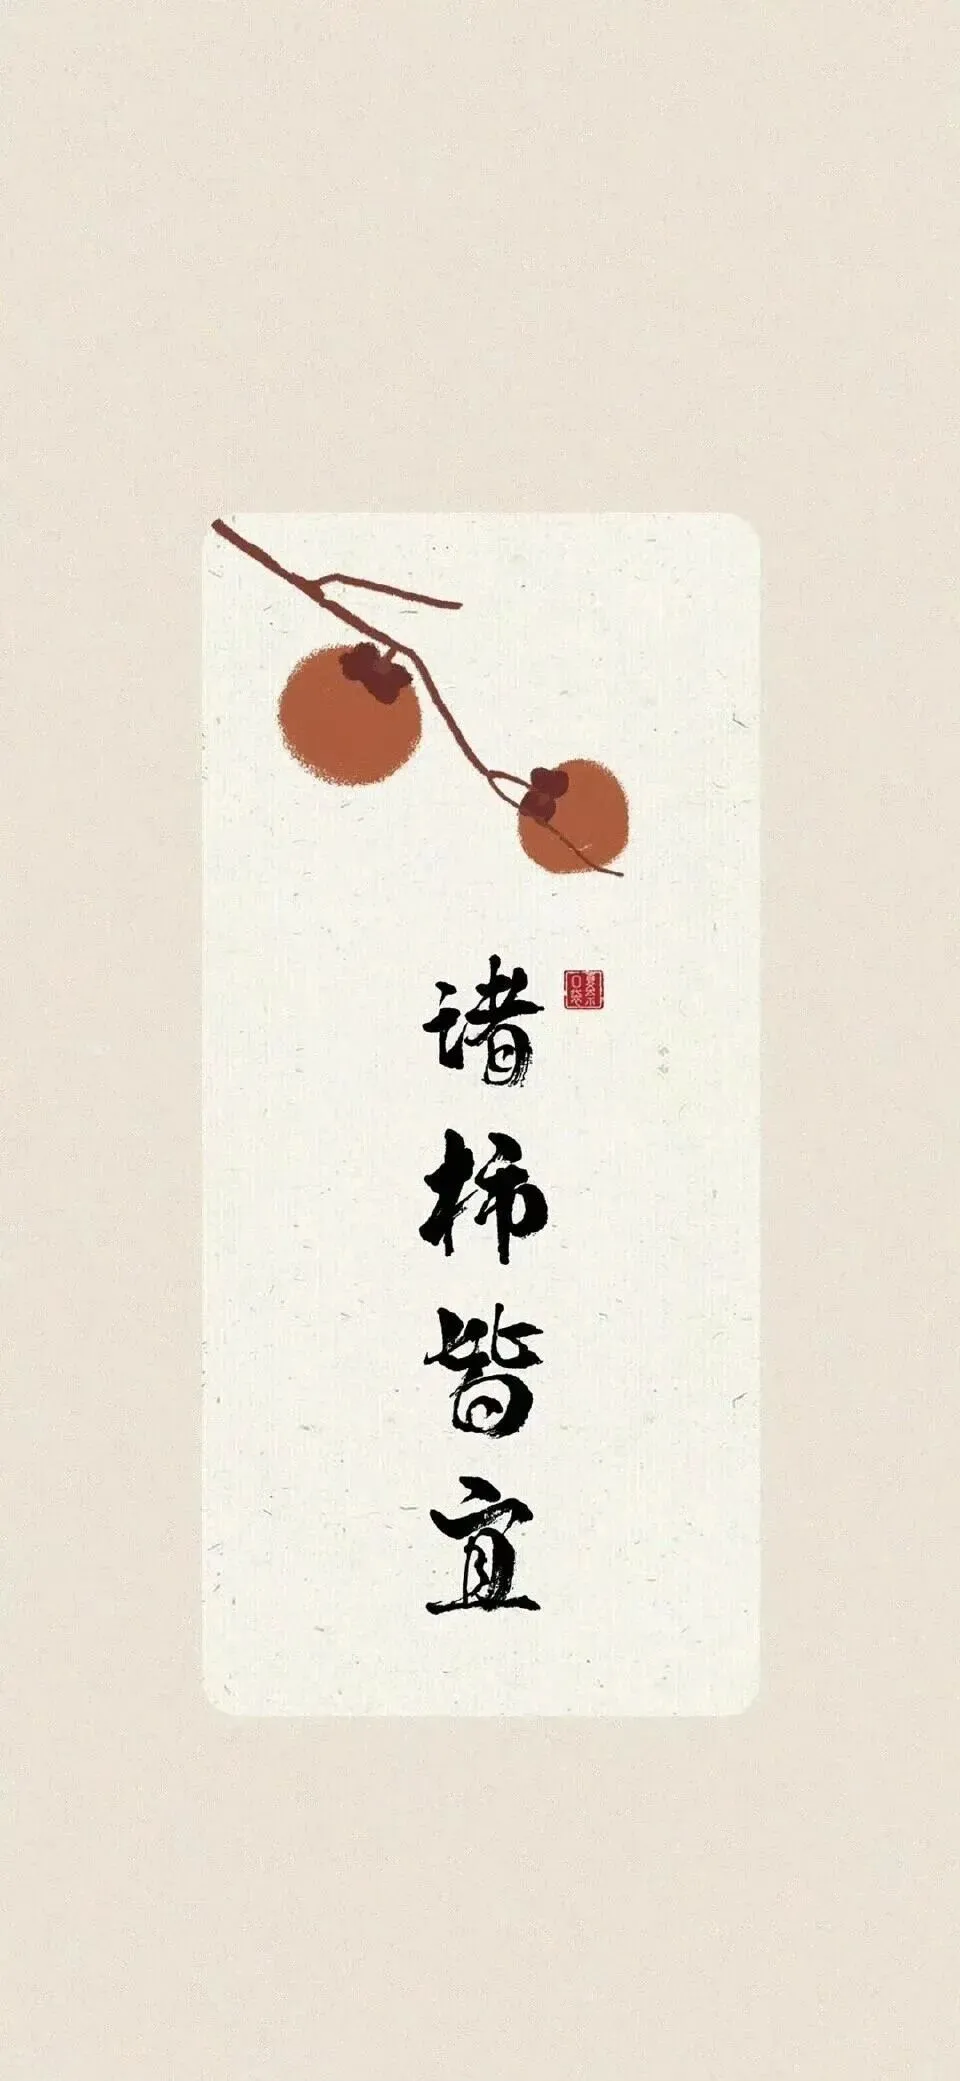 诸柿皆宜